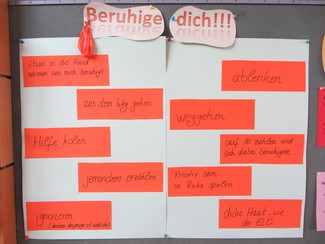 Beruhige dich!!!
etwas in die Hand
nehmen was mich beruhigt
aus dem Weg gehen
Hilfe holen
jemandem erzählen
ignorieren
ablenken
weggehen
auf 10 zählen und
sich dabei beruhigen
Kreativ sein
in Ruhe spielen
dicke Haut, wie
der ELO